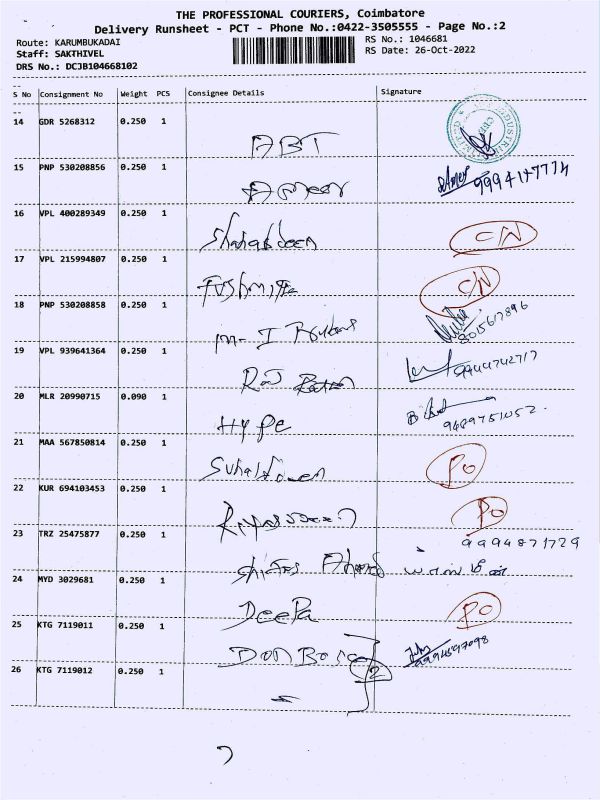 THE PROFESSIONAL COURIERS, Coimbatore
Delivery Runsheet - PCT - Phone No.:0422-3505555 - Page No.:2
Route: KARUMBUKADAI
RS No.: 1046681
Staff: SAKTHIVEL
RS Date: 26-Oct-2022
DRS No.: DCJB104668102
S No Consignment No Weight PCS Consignee Details Signature
14 GDR 5268312 0.250 1 ABT
15 PNP 530208856 0.250 1 Ameer 9994147774
16 VPL 400289349 0.250 1 Shahabdeen C/N
17 VPL 215994807 0.250 1 C/N
18 PNP 530208858 0.250 1 8015617896
19 VPL 939641364 0.250 1
20 MLR 20990715 0.090 1 Hype 9489751052
21 MAA 567850814 0.250 1 PO
22 KUR 694103453 0.250 1 PO
23 TRZ 25475877 0.250 1 9994871729
24 MYD 3029681 0.250 1 Deepa PO
25 KTG 7119011 0.250 1 Don Bosco
26 KTG 7119012 0.250 1 2